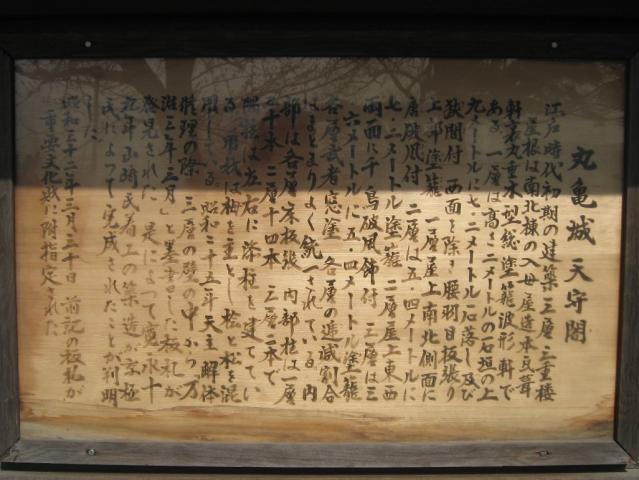 丸亀城天守閣
江戸時代初期の建築三層三重楼
屋根は南北棟の入母屋造本瓦葺
軒裏一重水型総塗籠波形軒で
ある 一層は高さ二メートルの石垣の上
九メートルに七・二メートル石落し及び
狭間付 西面を除き腰羽目板張り
上部塗籠 一層屋上南北側面に
唐破風付 二層は五・四メートルに
七・二メートル塗籠 二層屋上東西
両面に千鳥破風飾付 三層は三
六メートルに五・四メートル塗籠
各層武者窓塗 各層の逓減割合
はまとまりよく統一されている 内
部は各層床板張 内部柱は一層
二十本 二層十四本 三層二本で
側柱は左右に添柱を建ててい
る 用材は柚を主とし桧と松を混
用している 昭和二十五年天主解体
修理の際 三層の壁の中から「万
治三年三月」と墨書した板札が
発見された 是によって寛永十
九年山崎氏着工の築造が京極
氏によって完成されたことが判明
した
昭和三十二年三月三十日 前記の板札が
重要文化財に附指定された